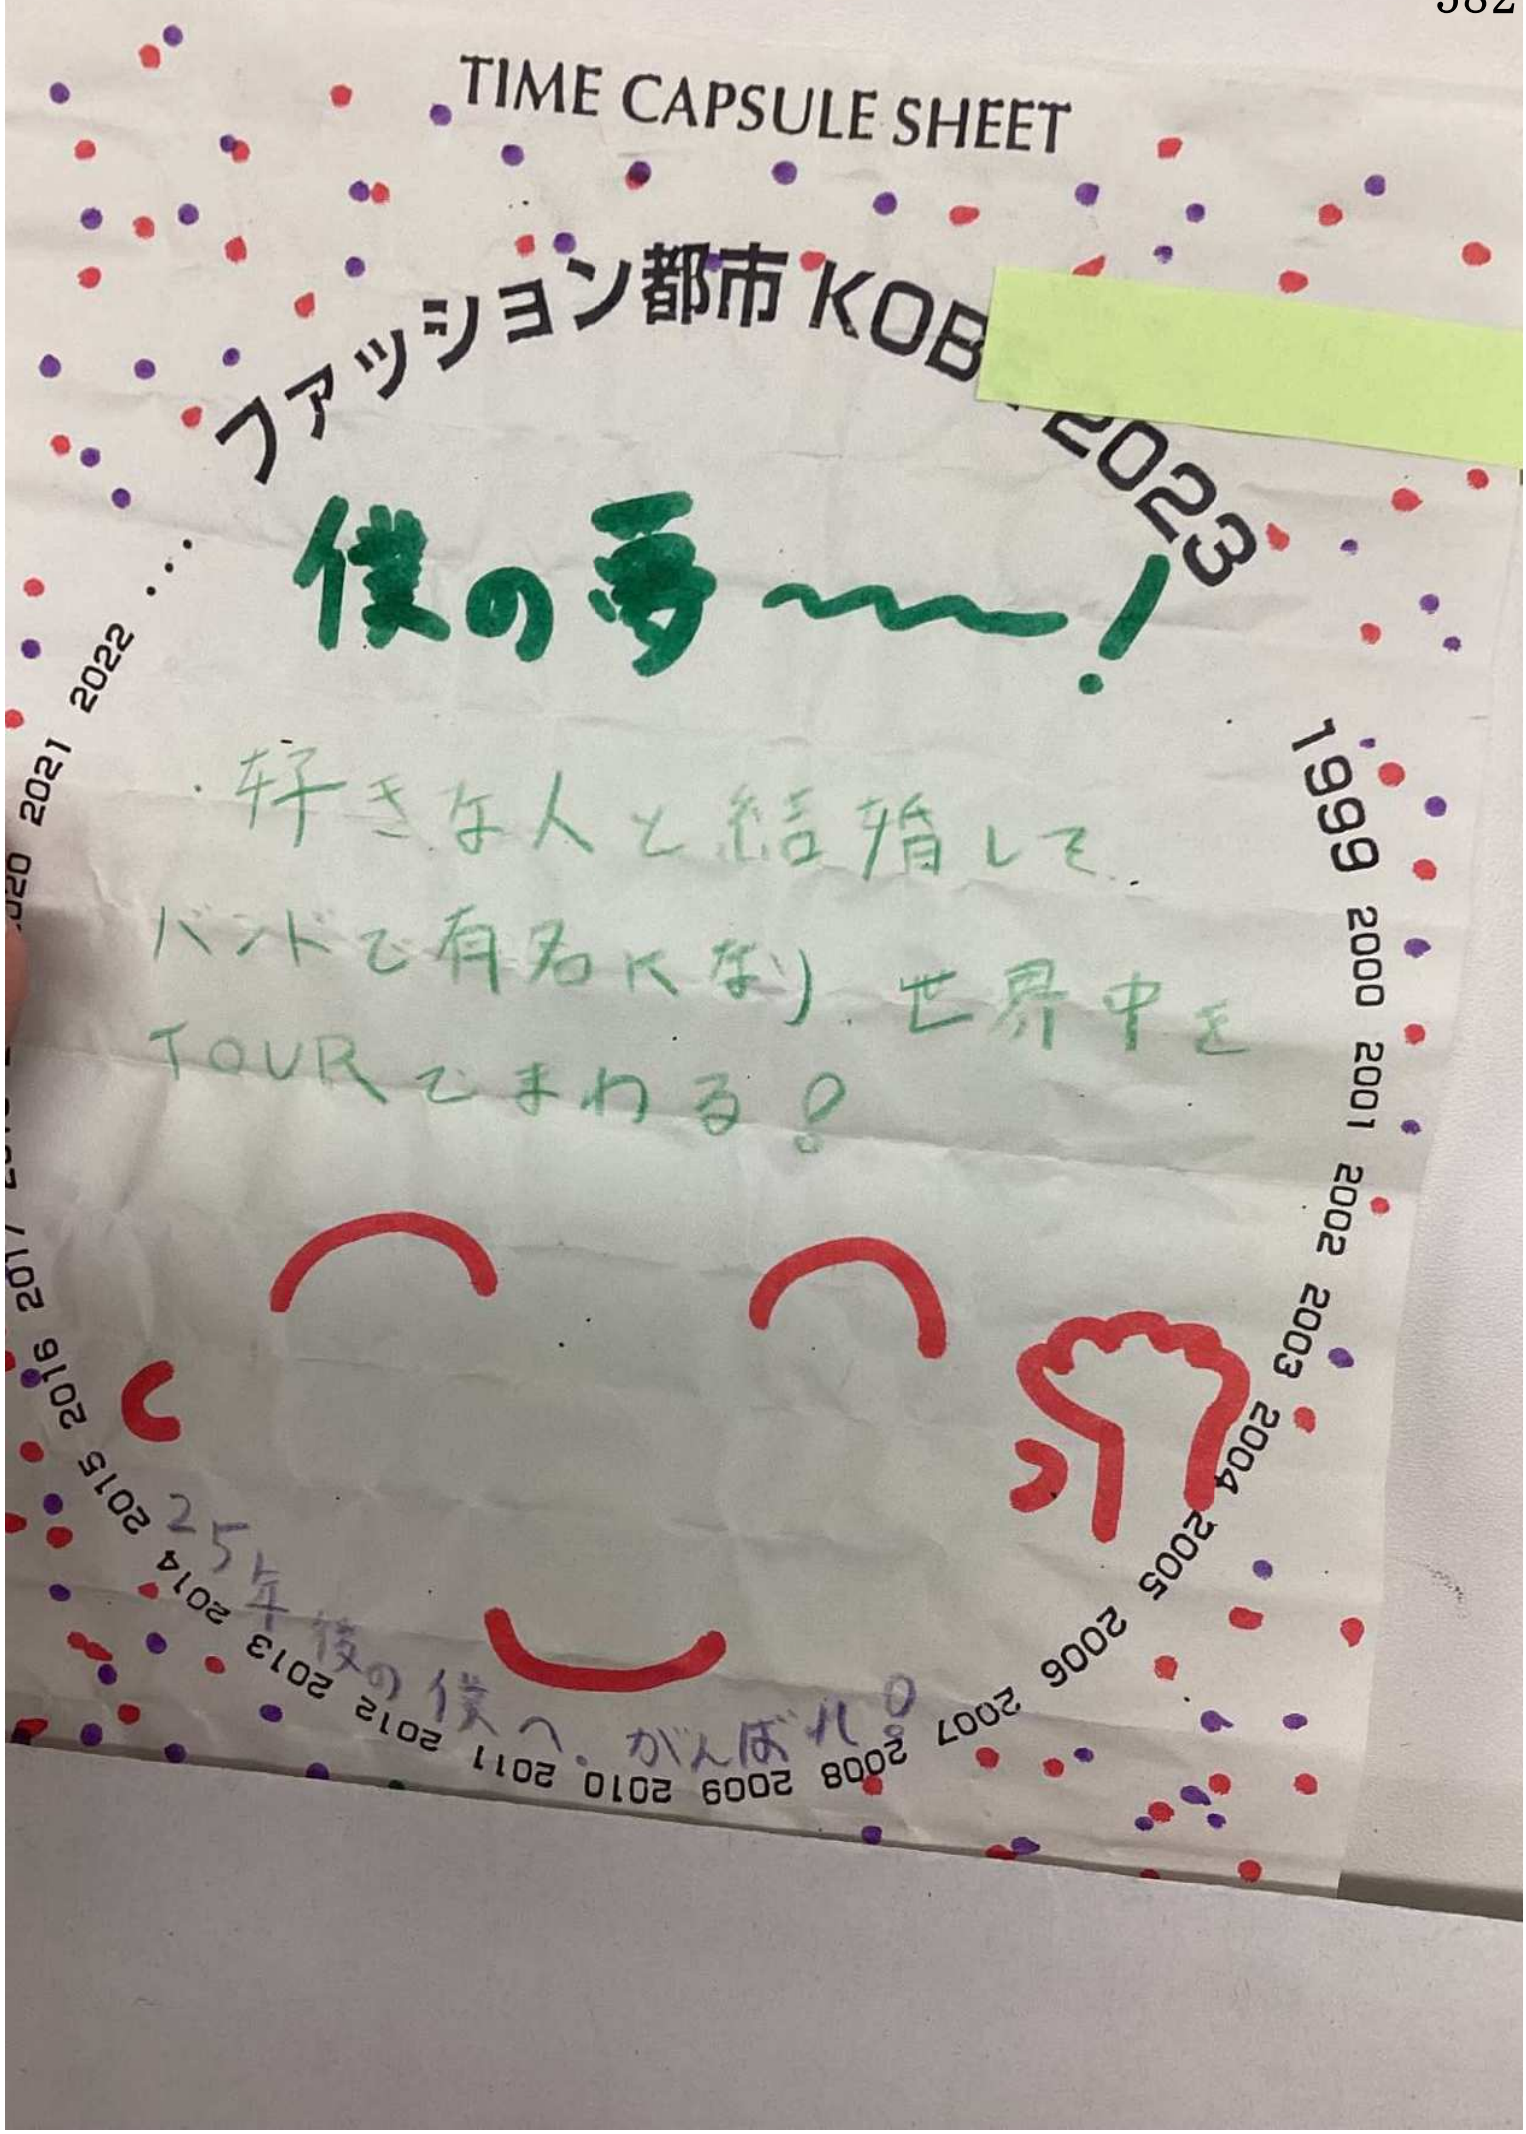 TIME CAPSULE SHEET
ファッション都市 KOB 2023
僕の夢〜!
好きな人と結婚して
バンドで有名になり、世界中を
TOURでまわる!
25年後の僕へ. がんばれ!
1999 2000 2001 2002 2003 2004 2005 2006 2007 2008 2009 2010 2011 2012 2013 2014 2015 2016 2017
2021 2022 ...